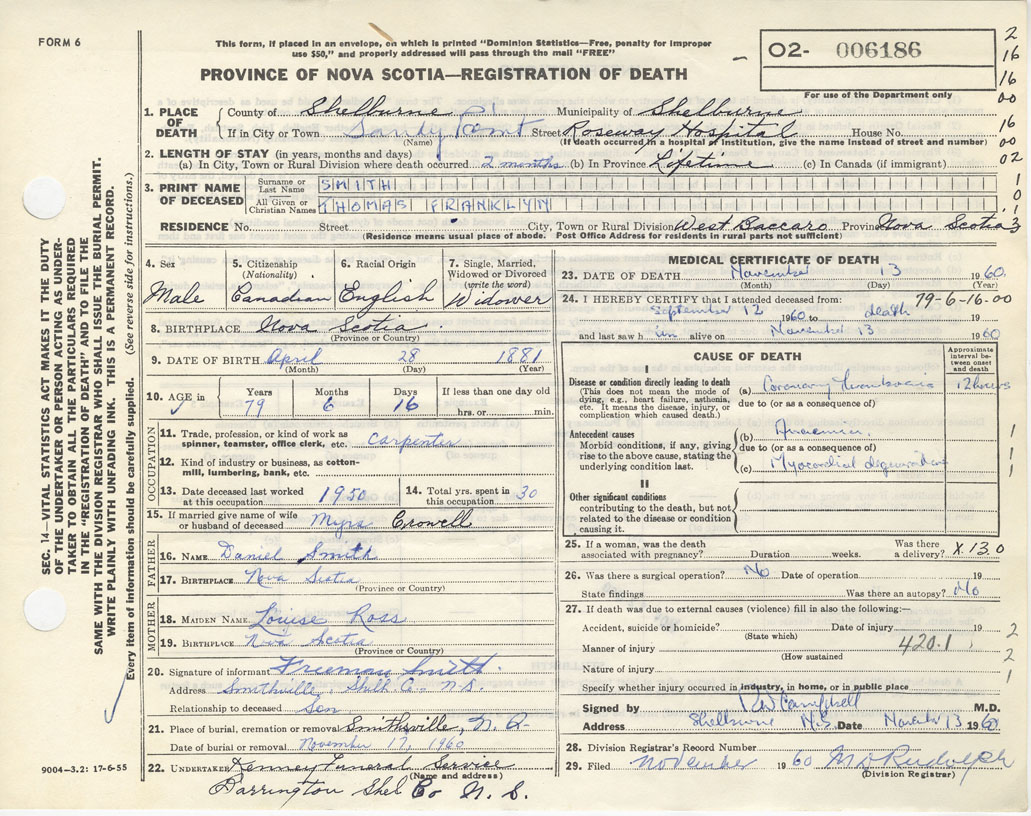 FORM 6
This form, if placed in an envelope, on which is printed "Dominion Statistics—Free, penalty for improper
use $50," and properly addressed will pass through the mail "FREE"
PROVINCE OF NOVA SCOTIA—REGISTRATION OF DEATH
O2- 006186
For use of the Department only
2
16
16
00
16
00
02
1
0
1
3
1. PLACE OF DEATH
County of Shelburne Municipality of Shelburne
If in City or Town Sandy Point Street Roseway Hospital House No.
(Name) (If death occurred in a hospital of institution, give the name instead of street and number)
2. LENGTH OF STAY (in years, months and days)
(a) In City, Town or Rural Division where death occurred 2 months (b) In Province Lifetime (c) In Canada (if immigrant)
3. PRINT NAME OF DECEASED
Surname or Last Name SMITH
All Given or Christian Names THOMAS FRANKLYN
RESIDENCE No. Street City, Town or Rural Division West Baccaro Province Nova Scotia
(Residence means usual place of abode. Post Office Address for residents in rural parts not sufficient)
4. Sex Male
5. Citizenship (Nationality) Canadian
6. Racial Origin English
7. Single, Married, Widowed or Divorced (write the word) Widower
8. BIRTHPLACE Nova Scotia
(Province or Country)
9. DATE OF BIRTH April 28 1881
(Month) (Day) (Year)
10. AGE in Years 79 Months 6 Days 16 If less than one day old hrs. or min.
OCCUPATION
11. Trade, profession, or kind of work as spinner, teamster, office clerk, etc. Carpenter
12. Kind of industry or business, as cotton-mill, lumbering, bank, etc.
13. Date deceased last worked at this occupation 1950
14. Total yrs. spent in this occupation 30
15. If married give name of wife or husband of deceased Myra Crowell
FATHER
16. NAME Daniel Smith
17. BIRTHPLACE Nova Scotia
(Province or Country)
MOTHER
18. MAIDEN NAME Louise Ross
19. BIRTHPLACE Nova Scotia
(Province or Country)
20. Signature of informant Freeman Smith
Address Smithville, Shelb Co., N.S.
Relationship to deceased Son
21. Place of burial, cremation or removal Smithville, N.S.
Date of burial or removal November 17, 1960
22. UNDERTAKER Denney Funeral Service
(Name and address)
Barrington Shel Co N. S.
MEDICAL CERTIFICATE OF DEATH
23. DATE OF DEATH November 13 1960
(Month) (Day)
24. I HEREBY CERTIFY that I attended deceased from: 79-6-16-00
September 12 1960 to death 19
and last saw h im alive on November 13 1960
CAUSE OF DEATH
Approximate interval between onset and death
I
Disease or condition directly leading to death (a) Coronary thrombosis 12 hours
(This does not mean the mode of dying, e.g., heart failure, asthenia, etc. It means the disease, injury, or complication which caused death.)
due to (or as a consequence of)
Antecedent causes
Morbid conditions, if any, giving rise to the above cause, stating the underlying condition last.
(b) Anaemia
due to (or as a consequence of)
(c) Myocardial degeneration
II
Other significant conditions contributing to the death, but not related to the disease or condition causing it.
1
1
1
25. If a woman, was the death associated with pregnancy? Duration weeks. Was there a delivery? X 13.0
26. Was there a surgical operation? No Date of operation 19
State findings Was there an autopsy? No
27. If death was due to external causes (violence) fill in also the following:—
Accident, suicide or homicide? Date of injury 19
(State which)
Manner of injury 420.1
(How sustained
Nature of injury
2
2
1
Specify whether injury occurred in industry, in home, or in public place
Signed by R W Campbell M.D.
Address Shelburne N.S. Date November 13 1960
28. Division Registrar's Record Number
29. Filed November 1960
(Division Registrar)
SEC. 14—VITAL STATISTICS ACT MAKES IT THE DUTY
OF THE UNDERTAKER OR PERSON ACTING AS UNDER-
TAKER TO OBTAIN ALL THE PARTICULARS REQUIRED
IN THE "REGISTRATION OF DEATH" AND FILE THE
SAME WITH THE DIVISION REGISTRAR WHO SHALL ISSUE THE BURIAL PERMIT.
WRITE PLAINLY WITH UNFADING INK. THIS IS A PERMANENT RECORD.
Every item of information should be carefully supplied. (See reverse side for instructions.)
9004—3.2: 17-6-55